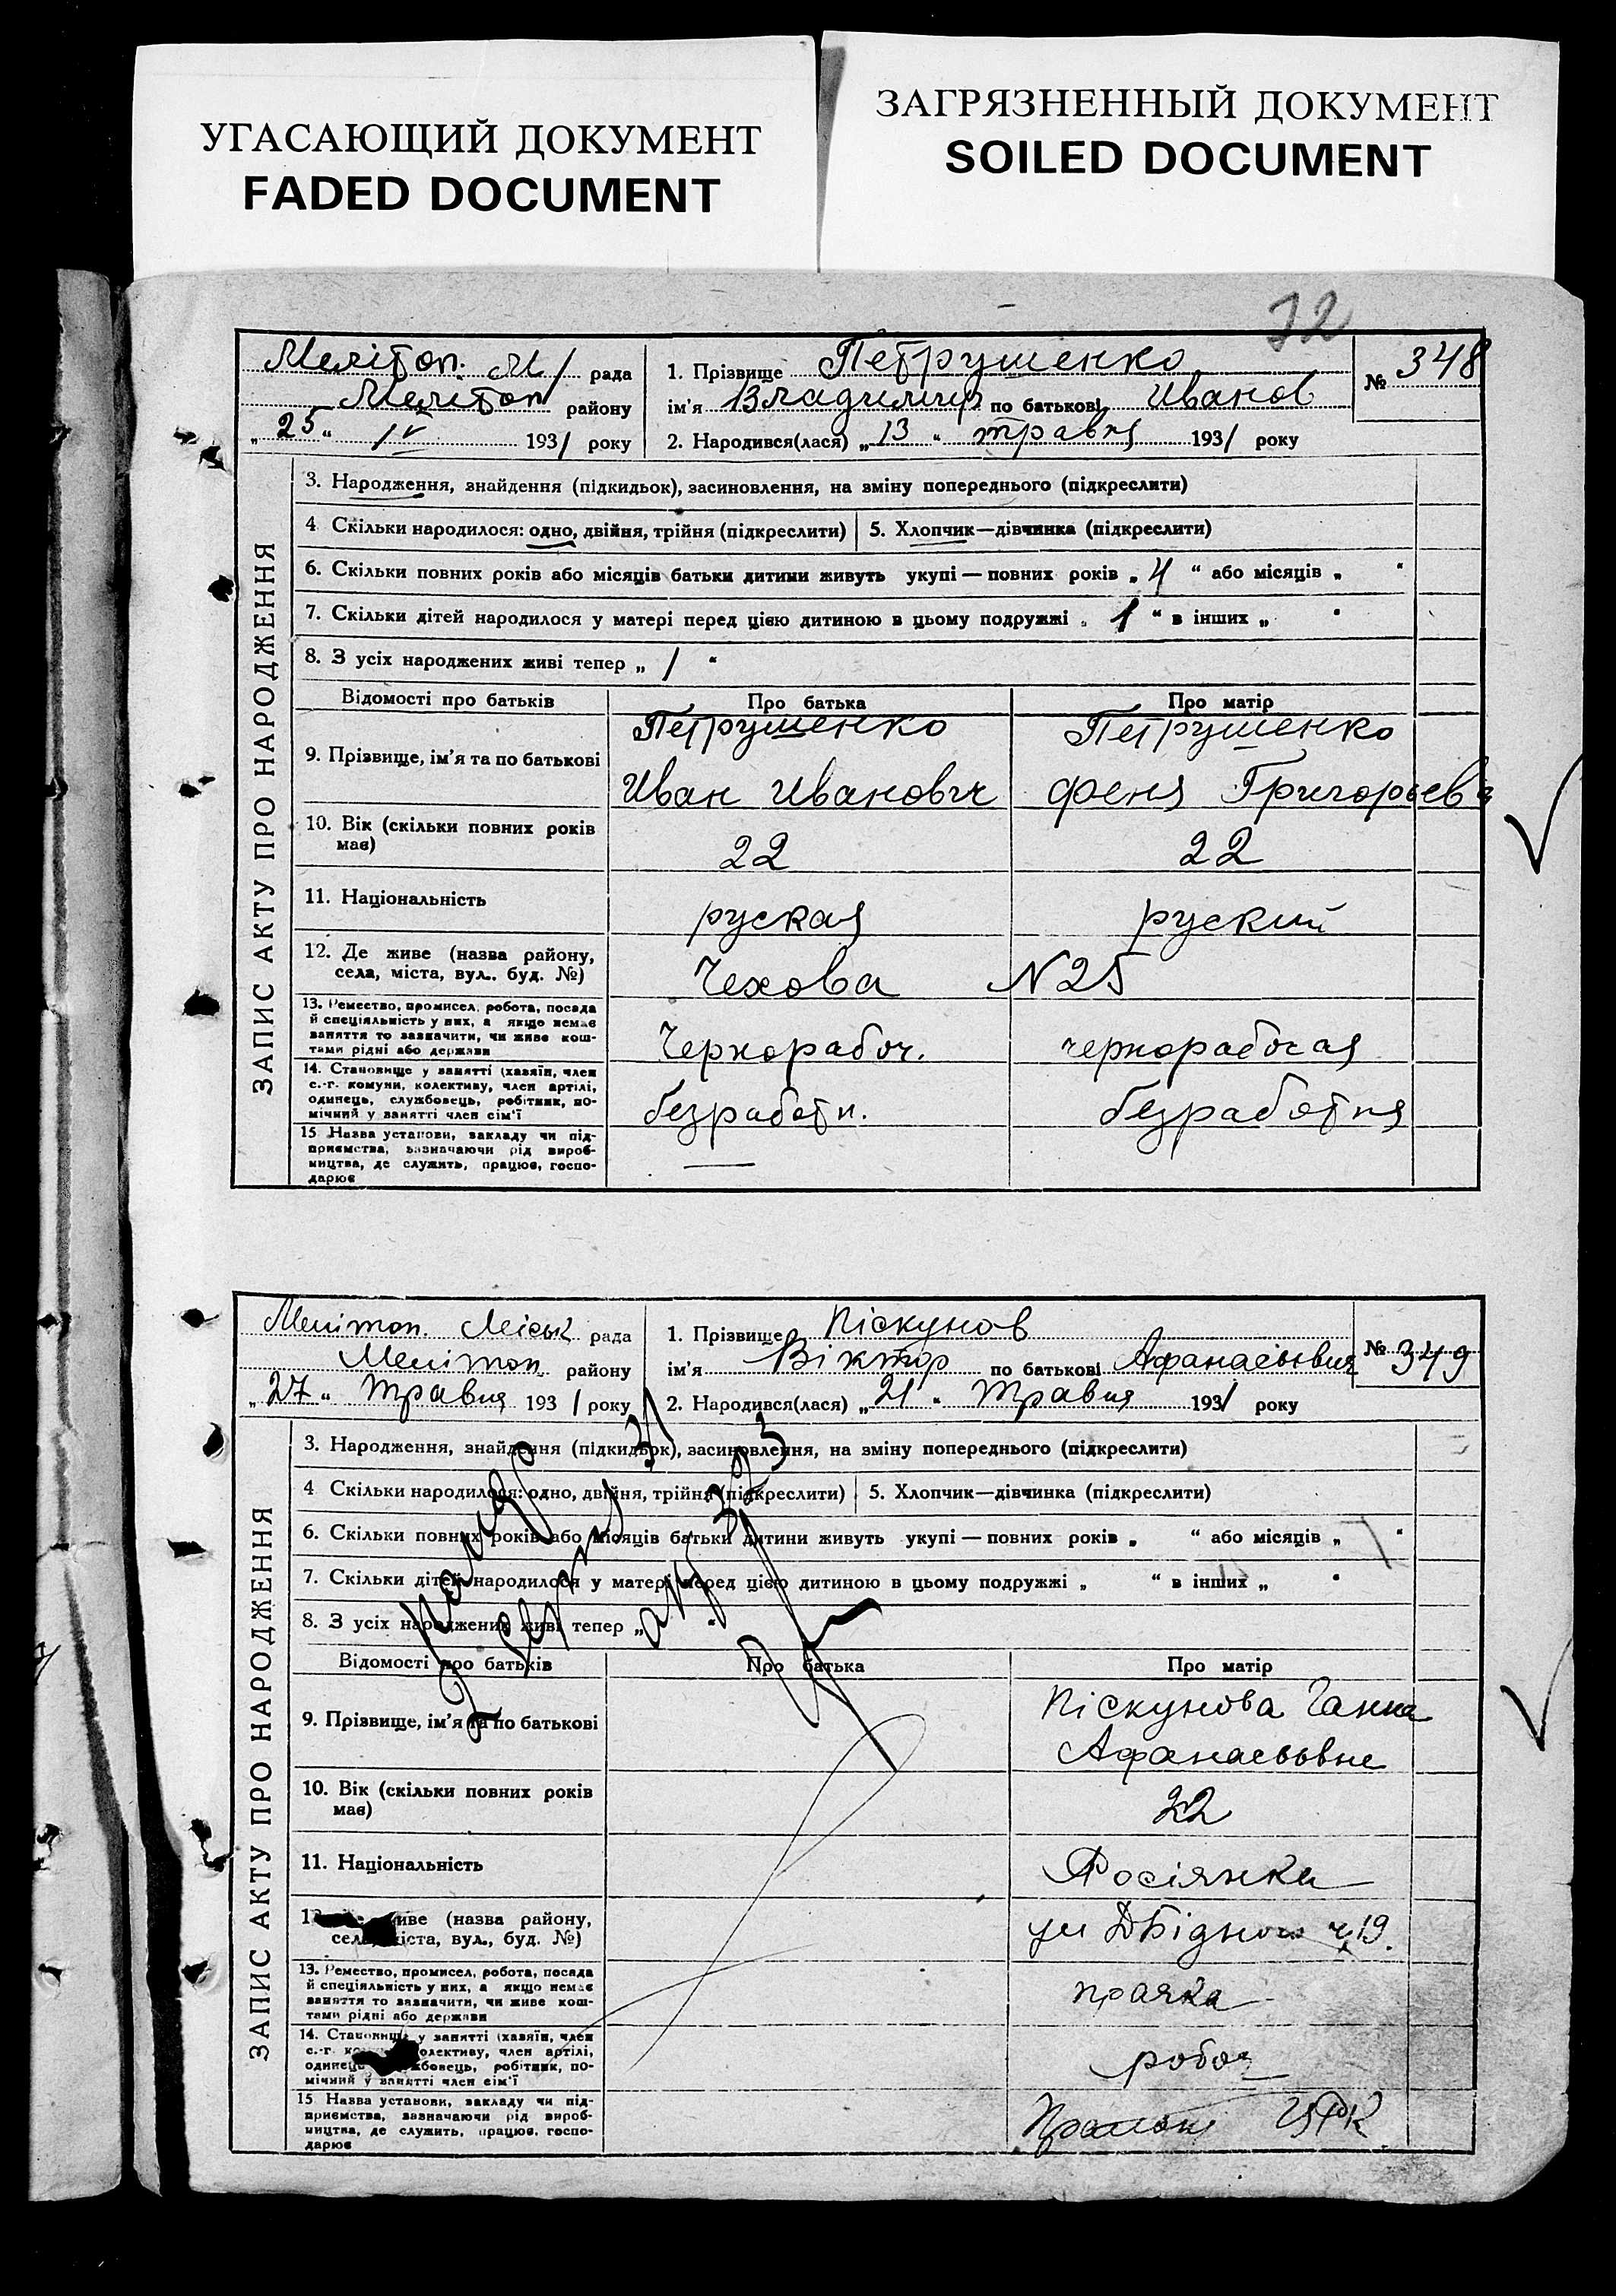 УГАСАЮЩИЙ ДОКУМЕНТ
FADED DOCUMENT
ЗАГРЯЗНЕННЫЙ ДОКУМЕНТ
SOILED DOCUMENT
32
ЗАПИС АКТУ ПРО НАРОДЖЕННЯ
Мелітоп. М/ рада
Мелітоп району
„25“ IV 1931 року
1. Прізвище Петрушенко
ім'я Владимир по батькові Иванов
2. Народився(лася) „13“ травня 1931 року
№ 348
3. Народження, знайдення (підкидьок), засиновлення, на зміну попереднього (підкреслити)
4 Скільки народилося: одно, двійня, трійня (підкреслити) 5. Хлопчик—дівчинка (підкреслити)
6. Скільки повних років або місяців батьки дитини живуть укупі — повних років „4“ або місяців „ “
7. Скільки дітей народилося у матері перед цією дитиною в цьому подружжі „1“ в інших „ “
8. З усіх народжених живі тепер „1“
Відомості про батьків Про батька Про матір
9. Прізвище, ім'я та по батькові
Петрушенко Петрушенко
Иван Иванович Феня Григорьевa
10. Вік (скільки повних років має) 22 22
11. Національність руская руский
12. Де живе (назва району, села, міста, вул., буд. №) Чехова N 25
13. Ремество, промисел, робота, посада
й спеціяльність у них, а якщо немає
заняття то зазначити, чи живе кош-
тами рідні або держави
Чернорабоч. чернорабочая
14. Становище у занятті (хазяїн, член
с.-г. комуни, колективу, член артілі,
одинець, службовець, робітник, по-
мічний у занятті член сім'ї
безработн. безработня
15 Назва установи, закладу чи під-
приємства, зазначаючи рід вироб-
ництва, де служить, працює, госпо-
дарює
—
ЗАПИС АКТУ ПРО НАРОДЖЕННЯ
Мелітоп. Міськ рада
Мелітоп району
„27“ Травня 1931 року
1. Прізвище Піскунов
ім'я Віктор по батькові Афанасьевич
2. Народився(лася) „21“ Травня 1931 року
№ 349
3. Народження, знайдення (підкидьок), засиновлення, на зміну попереднього (підкреслити)
4 Скільки народилося: одно, двійня, трійня (підкреслити) 5. Хлопчик—дівчинка (підкреслити)
6. Скільки повних років або місяців батьки дитини живуть укупі — повних років „ “ або місяців „ “
7. Скільки дітей народилося у матері перед цією дитиною в цьому подружжі „ “ в інших „ “
8. З усіх народжених живі тепер „ “
Відомості про батьків Про батька Про матір
9. Прізвище, ім'я та по батькові
Піскунова Ганна
Афанасьевне
10. Вік (скільки повних років має) 22
11. Національність Росіянка
12. Де живе (назва району, села, міста, вул., буд. №) ул ДБідного ч 19.
13. Ремество, промисел, робота, посада
й спеціяльність у них, а якщо немає
заняття то зазначити, чи живе кош-
тами рідні або держави
прачка
14. Становище у занятті (хазяїн, член
с.-г. комуни, колективу, член артілі,
одинець, службовець, робітник, по-
мічний у занятті член сім'ї
робоч
15 Назва установи, закладу чи під-
приємства, зазначаючи рід вироб-
ництва, де служить, працює, госпо-
дарює